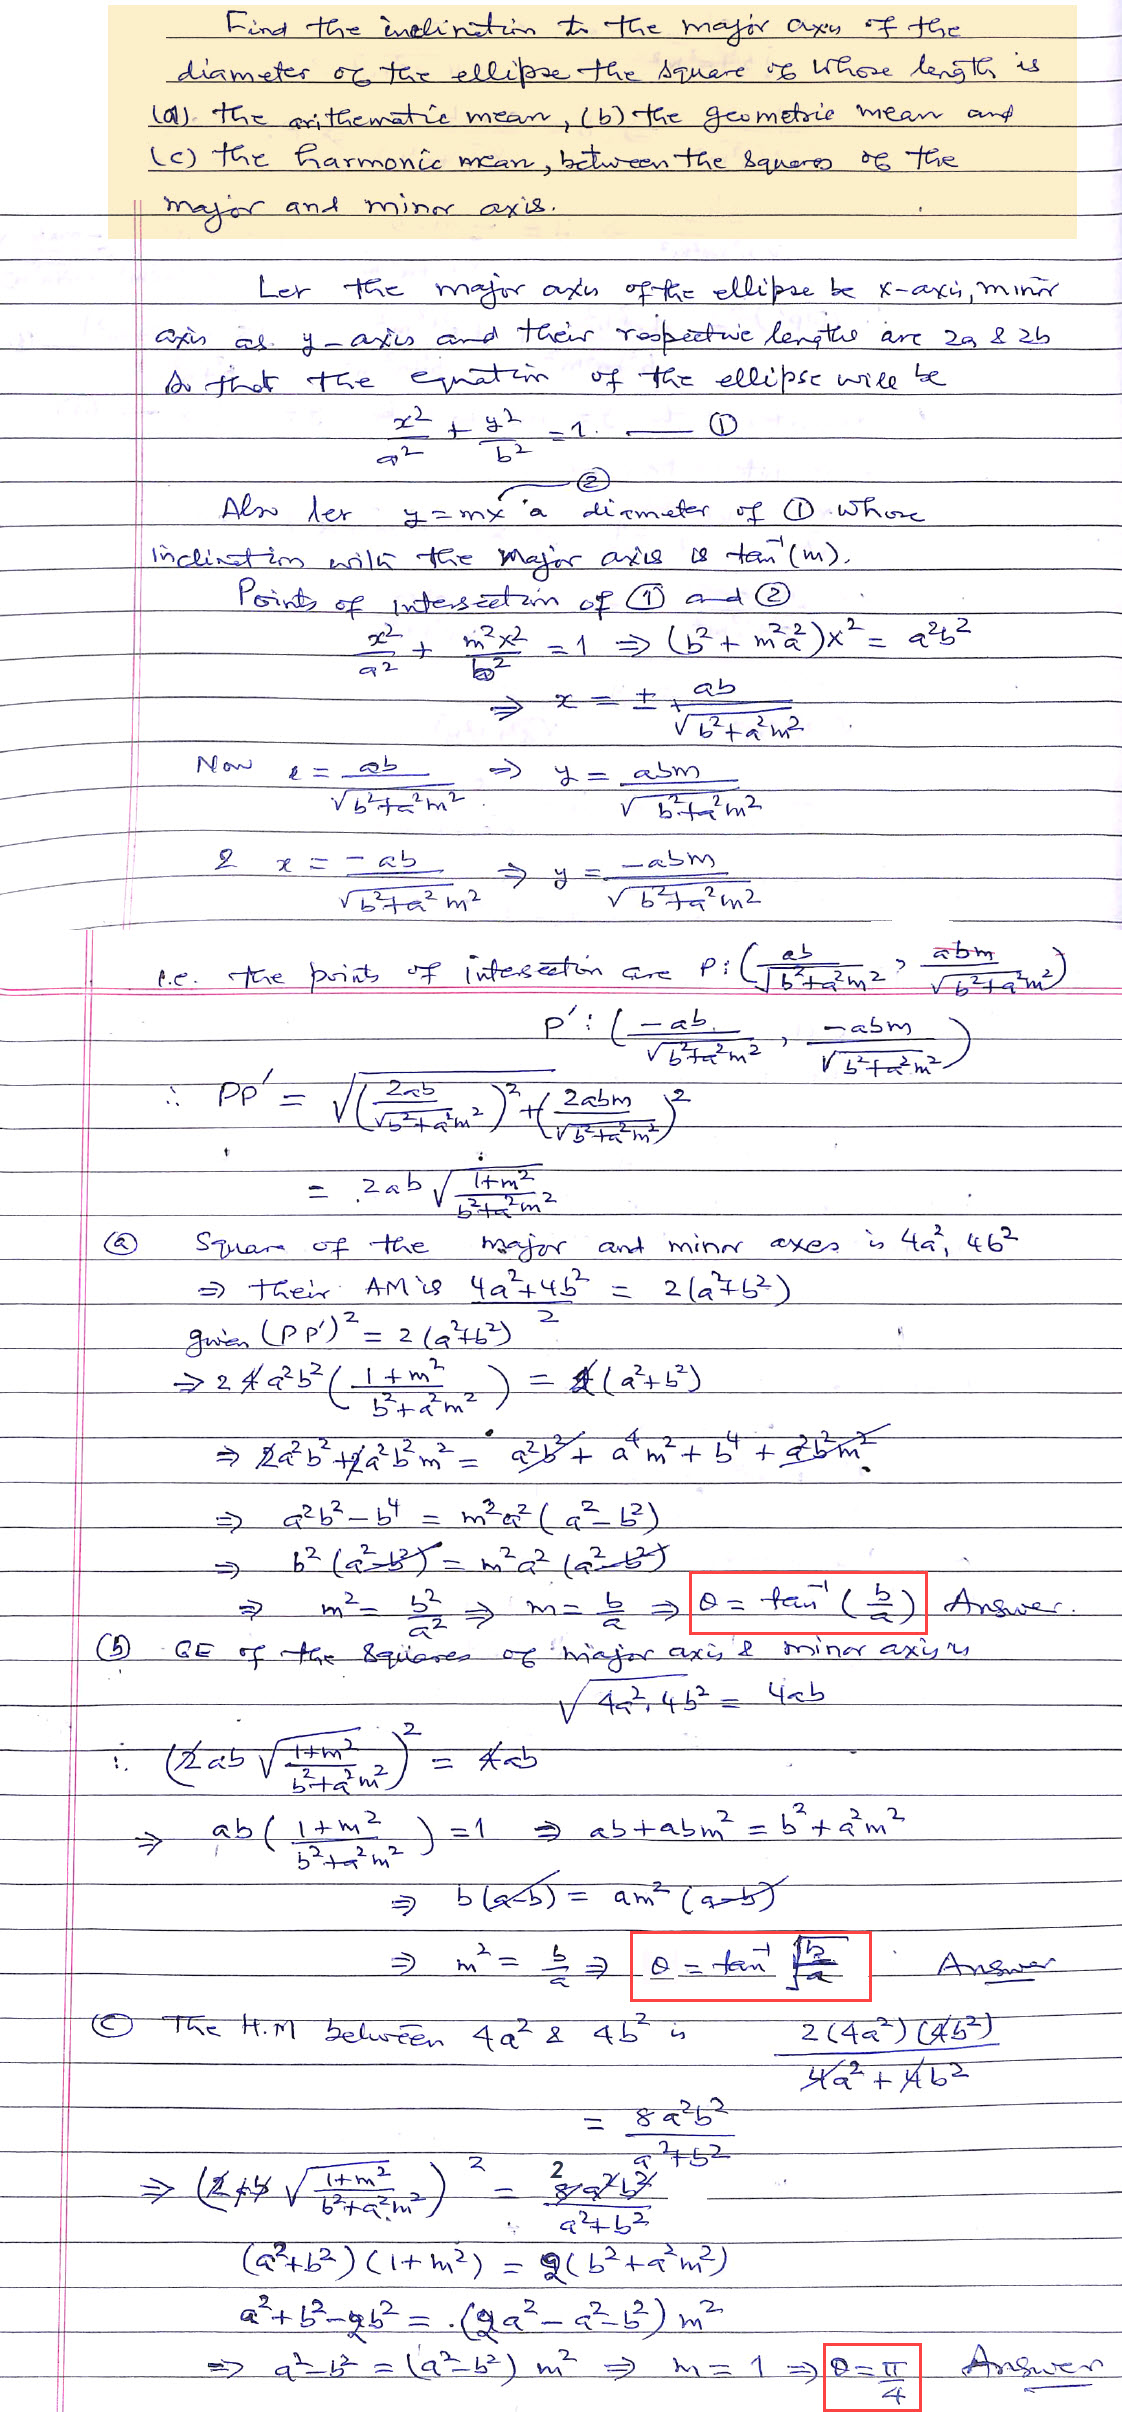 Find the inclination to the major axis of the
diameter of the ellipse the square of whose length is
(a) the arithematic mean, (b) the geometric mean and
(c) the harmonic mean, between the squares of the
major and minor axis.
Let the major axis of the ellipse be x-axis, minor
axis as y-axis and their respective lengths are 2a & 2b
so that the equation of the ellipse will be
x²/a² + y²/b² = 1. — ①
②
Also let y = mx a diameter of ① whose
inclination with the major axis is tan⁻¹(m).
Points of intersection of ① and ②
x²/a² + m²x²/b² = 1 ⇒ (b² + m²a²)x² = a²b²
⇒ x = ± ab/√(b²+a²m²)
Now x = ab/√(b²+a²m²) ⇒ y = abm/√(b²+a²m²)
& x = -ab/√(b²+a²m²) ⇒ y = -abm/√(b²+a²m²)
i.e. the points of intersection are P: (ab/√(b²+a²m²), abm/√(b²+a²m²))
P': (-ab/√(b²+a²m²), -abm/√(b²+a²m²))
∴ PP' = √((2ab/√(b²+a²m²))² + (2abm/√(b²+a²m²))²)
= 2ab √((1+m²)/(b²+a²m²))
ⓐ Square of the major and minor axes is 4a², 4b²
⇒ their AM is (4a²+4b²)/2 = 2(a²+b²)
given (PP')² = 2(a²+b²)
⇒ 2 4a²b² ((1+m²)/(b²+a²m²)) = 2(a²+b²)
⇒ 2a²b² + 2a²b²m² = a²b² + a⁴m² + b⁴ + a²b²m²
⇒ a²b² - b⁴ = m²a²(a² - b²)
⇒ b²(a²-b²) = m²a²(a²-b²)
⇒ m² = b²/a² ⇒ m = b/a ⇒ θ = tan⁻¹(b/a) Answer.
ⓑ GE of the squares of major axis & minor axis is
√(4a².4b²) = 4ab
∴ (2ab √((1+m²)/(b²+a²m²)))² = 4ab
⇒ ab((1+m²)/(b²+a²m²)) = 1 ⇒ ab + abm² = b² + a²m²
⇒ b(a-b) = am²(a-b)
⇒ m² = b/a ⇒ θ = tan⁻¹ √(b/a) Answer
ⓒ The H.M between 4a² & 4b² is 2(4a²)(4b²)/(4a² + 4b²)
= 8a²b²/(a²+b²)
⇒ (2ab √((1+m²)/(b²+a²m²)))² = 2 8a²b²/(a²+b²)
(a²+b²)(1+m²) = 2(b²+a²m²)
a²+b²-2b² = (2a²-a²-b²)m²
⇒ a²-b² = (a²-b²)m² ⇒ m = 1 ⇒ θ = π/4 Answer